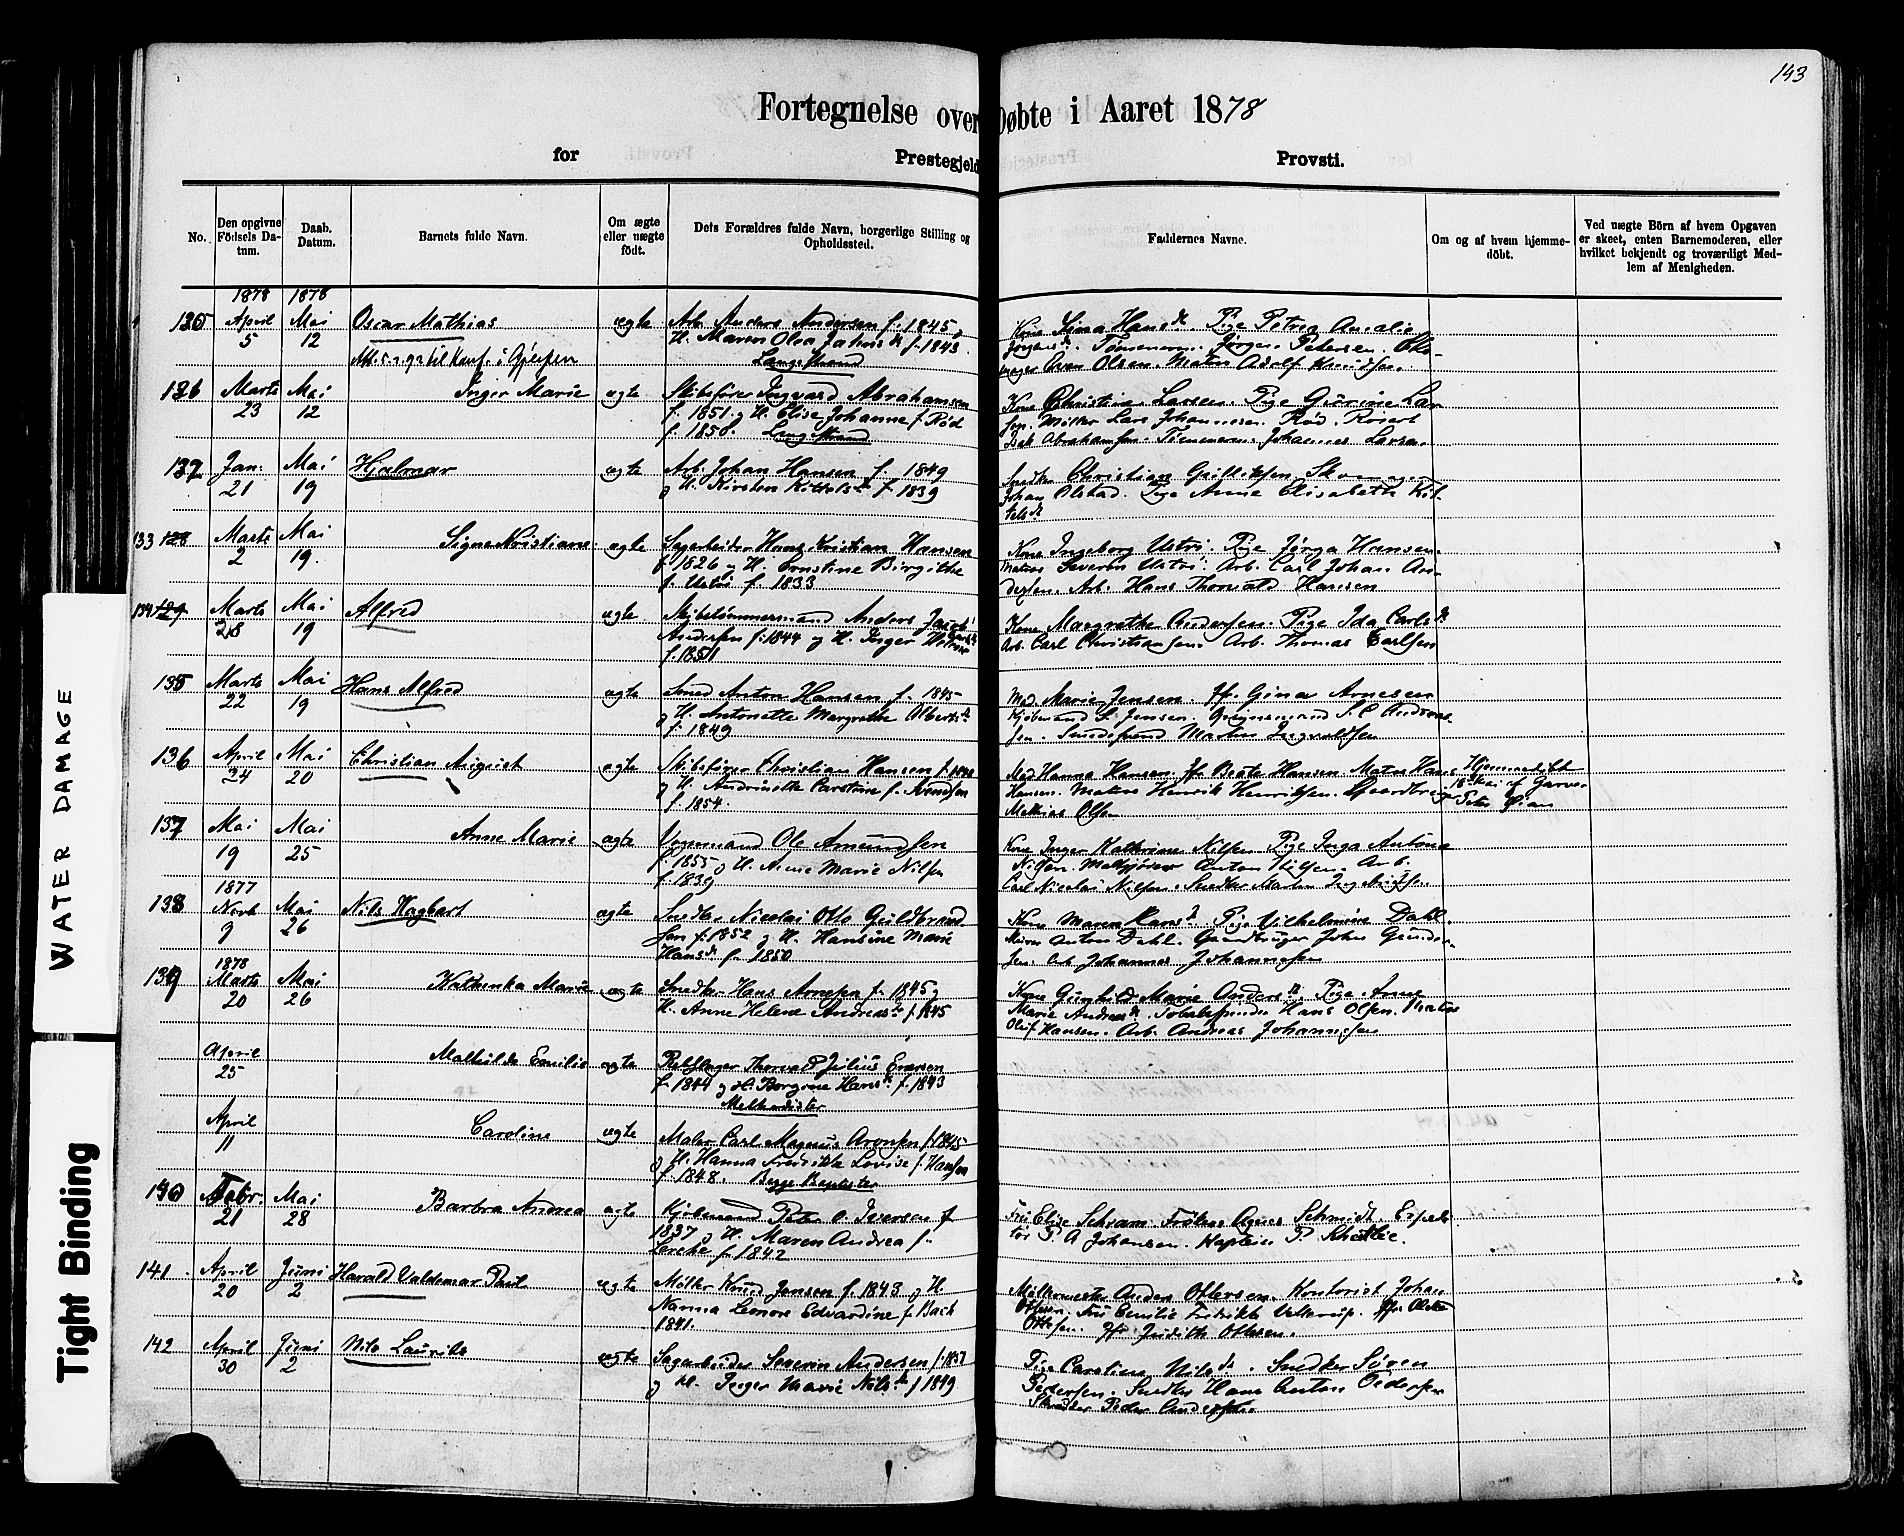 143
Fortegnelse over Døbte i Aaret 1878
for Prestegjeld Provsti.
No.
Den opgivne Födsels Da-tum.
Daab. Datum.
Barnets fulde Navn.
Om ægte eller uægte födt.
Dets Forældres fulde Navn, borgerlige Stilling og Opholdssted.
Faddernes Navne.
Om og af hvem hjemme-döbt.
Ved uægte Börn af hvem Opgaven er skeet, enten Barnemoderen, eller hvilket bekjendt og troværdigt Med-lem af Menigheden.
1878 1878
April 5 Mai 12 Oscar Mathias ægte Arb. Anders Andersen f. 1845
H. Maren Olea f. 1843
Langestrand
Kone Lina Hansd. Pige Petrea Amalie
Tømmerm. Jørgen Petersen.
Even Olsen. Matros Adolf Knudsen.
Marts 23 Mai 12 Inger Marie ægte Skibsfører Ingvard Abrahamsen
f. 1851 og H. Elise Johanne f. Rød
f. 1850. Langestrand
Kone Christine Larsen. Pige Gurine Lar
sen. Møller Lars Johannesen. Rød.
Isak Abrahamsen. Tømmerm. Johannes Larsen.
Jan. 21 Mai 19 Hjalmar ægte Arb. Johan Hansen f. 1849
og H. Kirsten Kittelsd. f. 1839
Snedker Christian Gulliksen Skomager
Johan Olstad. Pige Anne Elisabeth Kit
telsd.
133 128 Marts 2 Mai 19. Signe Kristiane ægte Sagarbeider Hans Kristian Hansen
f. 1826 og H. Ernstine Birgithe
f. Ustri f. 1833
Kone Ingeborg Ustri. Pige Jørga Hansen.
Matros Severin Ustri. Arb. Carl Johan An
dersen. Arb. Hans Thorvald Hansen
134 129 Marts 28 Mai 19 Alfred ægte Skibstømmermand Anders Jacob
Andersen f. 1844 og H. Inger
f. 1851
Kone Margrethe Andersen. Pige Ida Carlsd.
Arb. Carl Christiansen. Arb. Thomas Carlsen
135 Marts 22 Mai 19 Hans Alfred ægte Smed Anton Hansen f. 1845
og H. Antonette Margrethe Olbertsd.
f. 1849
Mad. Marie Jensen. Jfr. Gina Arnesen
Kjøbmand L. Jensen. S. C. Andrea
sen. Smedesvend Martin Ingvaldsen
136 April 24 Mai 20 Christian August ægte Skibsfører Christian Hansen f. 1848
og H. Andrinette Carstine f. Svendsen
f. 1854.
Mad. Hanna Hansen. Jfr. Beate Hansen. Matros Hans
Hansen. Matros Henrik Henriksen. Gaardbruger
Mathias Olsen
Hjemmedøbt
18 Mai af Garver
Peter Øian
137 Mai 19 Mai 25 Anne Marie ægte Vognmand Ole Amundsen
f. 1855 og H. Anne Marie Nilsen
f. 1839
Kone Inger Kathrine Nilsen. Pige Inga Antone
Nilsen. Anton Nilsen. Arb.
Carl Nicolai Nilsen. Snedker Martin
138 1877 Novb 9 Mai 26 Nils Hagbart ægte Snedker Nicolai Otto Guldbrand
sen f. 1852 og H. Hansine Marie
Hansd. f. 1850
Kone Maren Hansd. Pige Vilhelmine Dahl.
Anton Dahl. Gaardbruger Johan Gunder
sen. Arb. Johannes Johannesen
139 1878 Marts 20 Mai 26 Kathinka Marie ægte Snedker Hans Arnesen f. 1845 og
H. Anne Helene Andreasd. f. 1845
Kone Gunhild Marie Andersd. Pige Anne
Marie Andreasd. Hans Olsen. Matros
Oluf Hansen. Arb. Andreas Johannesen
April 25 Mathilde Emilie ægte Rebslager Thorvald Julius Evensen
f. 1844 og H. Borgine Hansd. f. 1843
Methodister
April 11 Caroline ægte Maler Carl Magnus Aronsen f. 1845
og H. Hanna Fredrikke Lovise f. Hansen
f. 1848. Begge Baptister
140 Febr. 21 Mai 28 Barbra Andrea ægte Kjøbmand Peter O. Iversen f.
1837 og H. Maren Andrea f.
Lerche f. 1842
Fru Elise Schram. Frøken Agnes Schmidt. Expedi
tør P. A. Johansen. Kaptein P.
141. April 20 Juni 2 Harald Valdemar Paul ægte Møller Knud Jensen f. 1843 og H.
Nanna Leonore Edvardine f. Bach
1841.
Møllermester Anders Ottersen. Kontorist Johan
Ottesen. Fru Emilie Fredrikke
Ottesen. Jfr. Judith Ottesen.
142 April 30 Juni 2 Nils Laurits ægte Sagarbeider Severin Andersen f. 1851
og H. Inger Marie Nilsd. f. 1849
Pige Caroline Nilsd. Snedker Søren
Pedersen. Snedker Hans Anton Pedersen
Skrædder Peder Andersen.
WATER DAMAGE
Tight Binding